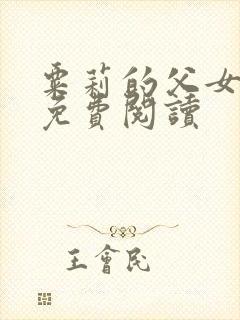 粟莉的父女
免費閱讀
王會民